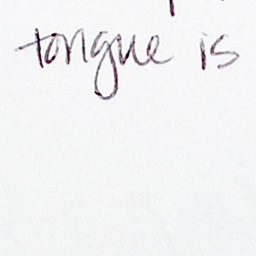 tongue is